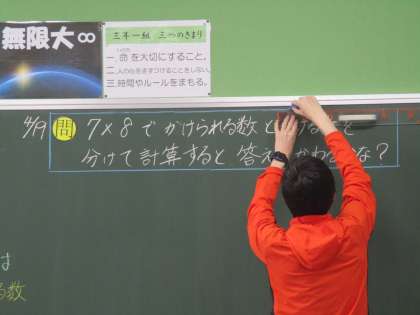 無限大∞
三年一組 三つのきまり
一.命を大切にすること。
二.人の心をきずつけることをしない。
三.時間やルールをまもる。
4/19 問 7×8でかけられる数と
分けて計算すると答え
は
る数